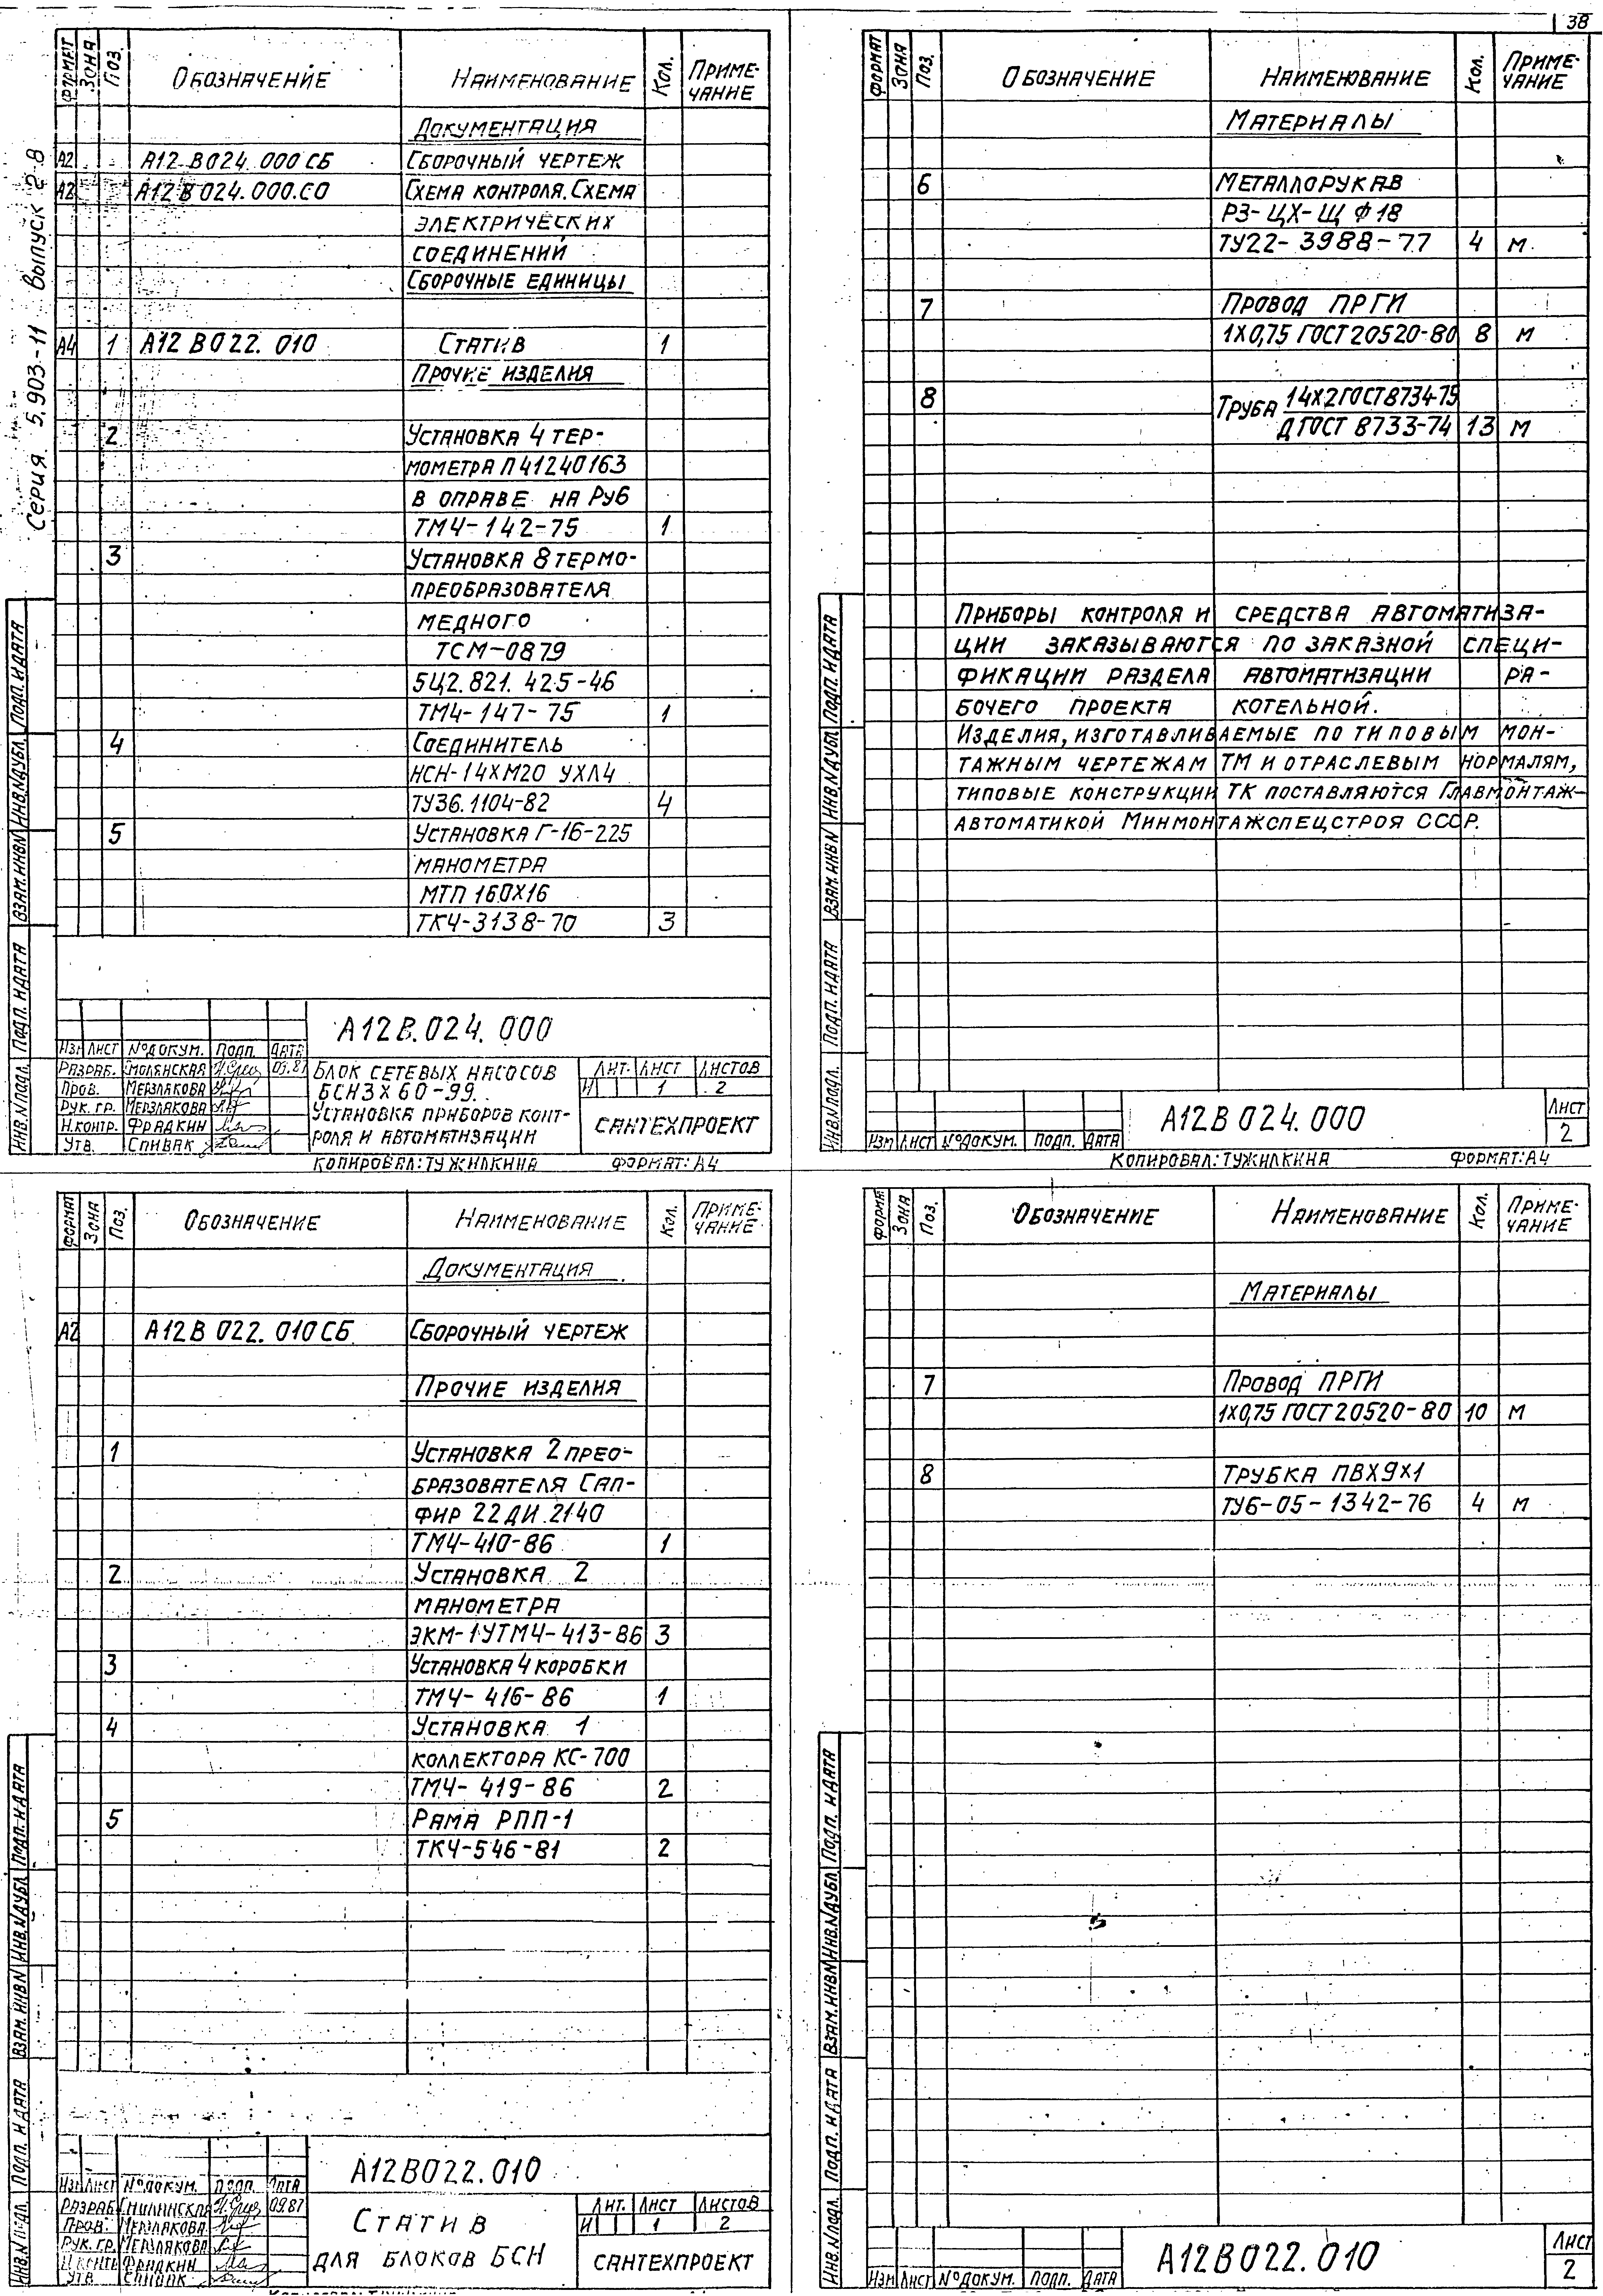 38
Серия 5.903-11 Выпуск 2-8
Формат Зона Поз. Обозначение Наименование Кол. Примечание
Документация
А2 А12В024.000СБ Сборочный чертеж
А2 А12В024.000.СО Схема контроля. Схема
электрических
соединений
Сборочные единицы
А4 1 А12В022.010 Статив 1
Прочие изделия
2 Установка 4 тер-
мометра П41240163
в оправе на Ру6
ТМ4-142-75 1
3 Установка 8 термо-
преобразователя
медного
ТСМ-0879
5Ц2.821.425-46
ТМ4-147-75 1
4 Соединитель
НСН-14хМ20 УХЛ4
ТУ36.1104-82 4
5 Установка Г-16-225
манометра
МТП 160х16
ТК4-3138-70 3
Инв.№подл. Подп. и дата Взам.инв№ Инв.№дубл. Подп. и дата
А12В.024.000
Изм Лист №докум. Подп. Дата
Разраб. Смолянская 09.87
Пров. Мерзлякова
Рук. гр. Мерзлякова
Н.контр. Фрадкин
Утв. Спивак
Блок сетевых насосов
БСН3х60-99.
Установка приборов конт-
роля и автоматизации
Лит. Лист Листов
И 1 2
САНТЕХПРОЕКТ
Копировал: Тужилкина Формат: А4
Формат Зона Поз. Обозначение Наименование Кол. Примечание
Материалы
6 Металлорукав
РЗ-ЦХ-Щ Ф18
ТУ22-3988-77 4 м
7 Провод ПРГИ
1х0,75 ГОСТ20520-80 8 м
8 Труба 14х2ГОСТ8734-75
ДГОСТ 8733-74 13 м
Приборы контроля и средства автоматиза-
ции заказываются по заказной специ-
фикации раздела автоматизации ра-
бочего проекта котельной.
Изделия, изготавливаемые по типовым мон-
тажным чертежам ТМ и отраслевым нормалям,
типовые конструкции ТК поставляются Главмонтаж-
автоматикой Минмонтажспецстроя СССР.
Инв.№подл. Подп. и дата Взам.инв№ Инв.№дубл. Подп. и дата
Изм Лист №докум. Подп. Дата
А12В024.000
Лист
2
Копировал: Тужилкина Формат: А4
Формат Зона Поз. Обозначение Наименование Кол. Примечание
Документация
А2 А12В022.010СБ Сборочный чертеж
Прочие изделия
1 Установка 2 прео-
бразователя Сап-
фир 22ДИ.2140
ТМ4-410-86 1
2 Установка 2
манометра
ЭКМ-1УТМ4-413-86 3
3 Установка 4 коробки
ТМ4-416-86 1
4 Установка 1
коллектора КС-700
ТМ4-419-86 2
5 Рама РПП-1
ТК4-546-81 2
Инв.№подл. Подп. и дата Взам.инв№ Инв.№дубл. Подп. и дата
А12В022.010
Изм Лист №докум. Подп. Дата
Разраб. Смолянская 09.87
Пров. Мерзлякова
Рук. гр. Мерзлякова
Н.контр. Фрадкин
Утв. Спивак
Статив
для блоков БСН
Лит. Лист Листов
И 1 2
САНТЕХПРОЕКТ
Формат Зона Поз. Обозначение Наименование Кол. Примечание
Материалы
7 Провод ПРГИ
1х0,75 ГОСТ20520-80 10 м
8 Трубка ПВХ9х1
ТУ6-05-1342-76 4 м
Инв.№подл. Подп. и дата Взам.инв№ Инв.№дубл. Подп. и дата
Изм Лист №докум. Подп. Дата
А12В022.010
Лист
2